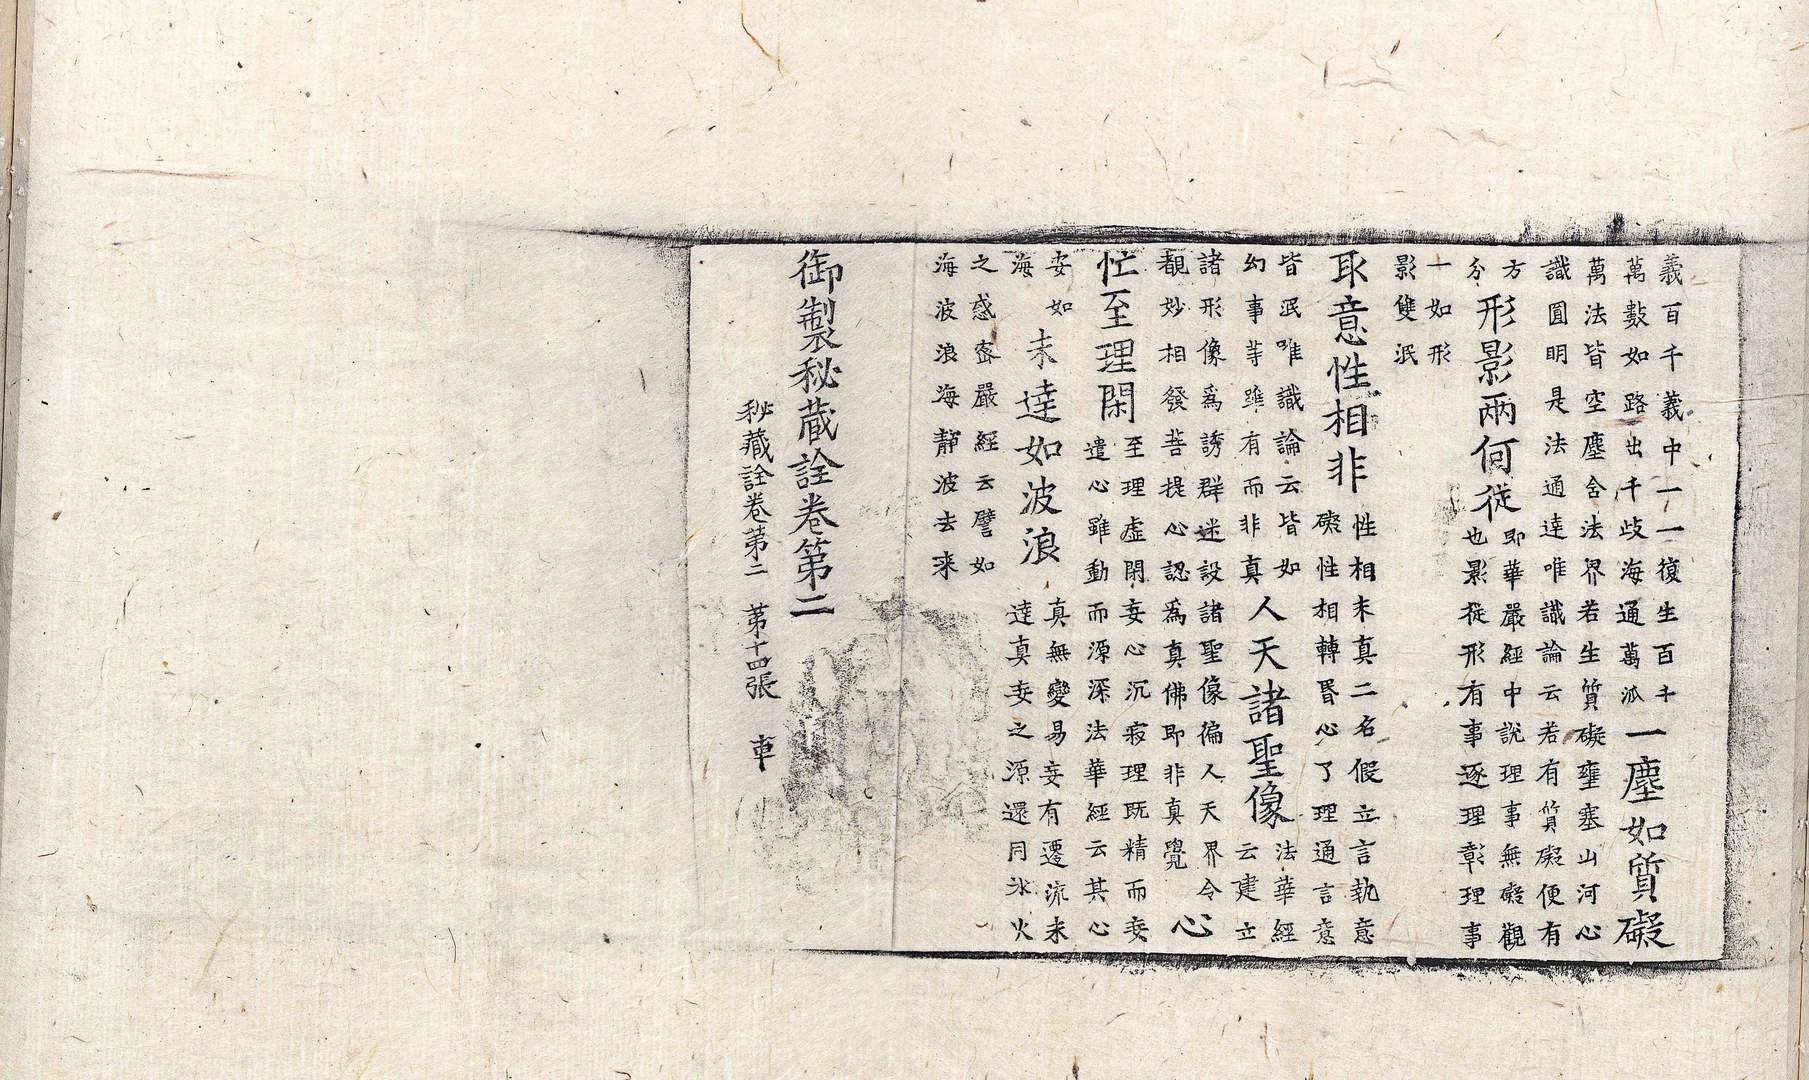 義百千義中一一復生百千
萬數如路出千歧海通萬派
一塵如質礙
萬法皆空塵含法界若生質礙壅塞山河心
識圓明是法通達唯識論云若有質礙便有
方
分
形影兩何從
即華嚴經中說理事無礙觀
也影從形有事逐理彰理事
一如形
影雙泯
取意性相非
性相未真二名假立言執意
礙性相轉昬心了理通言意
皆泯唯識論云皆如
幻事等雖有而非真
人天諸聖像
法華經
云建立
諸形像爲誘群迷設諸聖像徧人天界令
覩妙相發菩提心認爲真佛即非真覺
心
忙至理閑
至理虛閑妄心沉寂理既精而妄
遣心雖動而源深法華經云其心
安如
海
未達如波浪
真無變易妄有遷流未
達真妄之源還同氷火
之惑密嚴經云譬如
海波浪海靜波去來
御製秘蔵詮卷第二
秘藏詮卷第二 第十四張 車